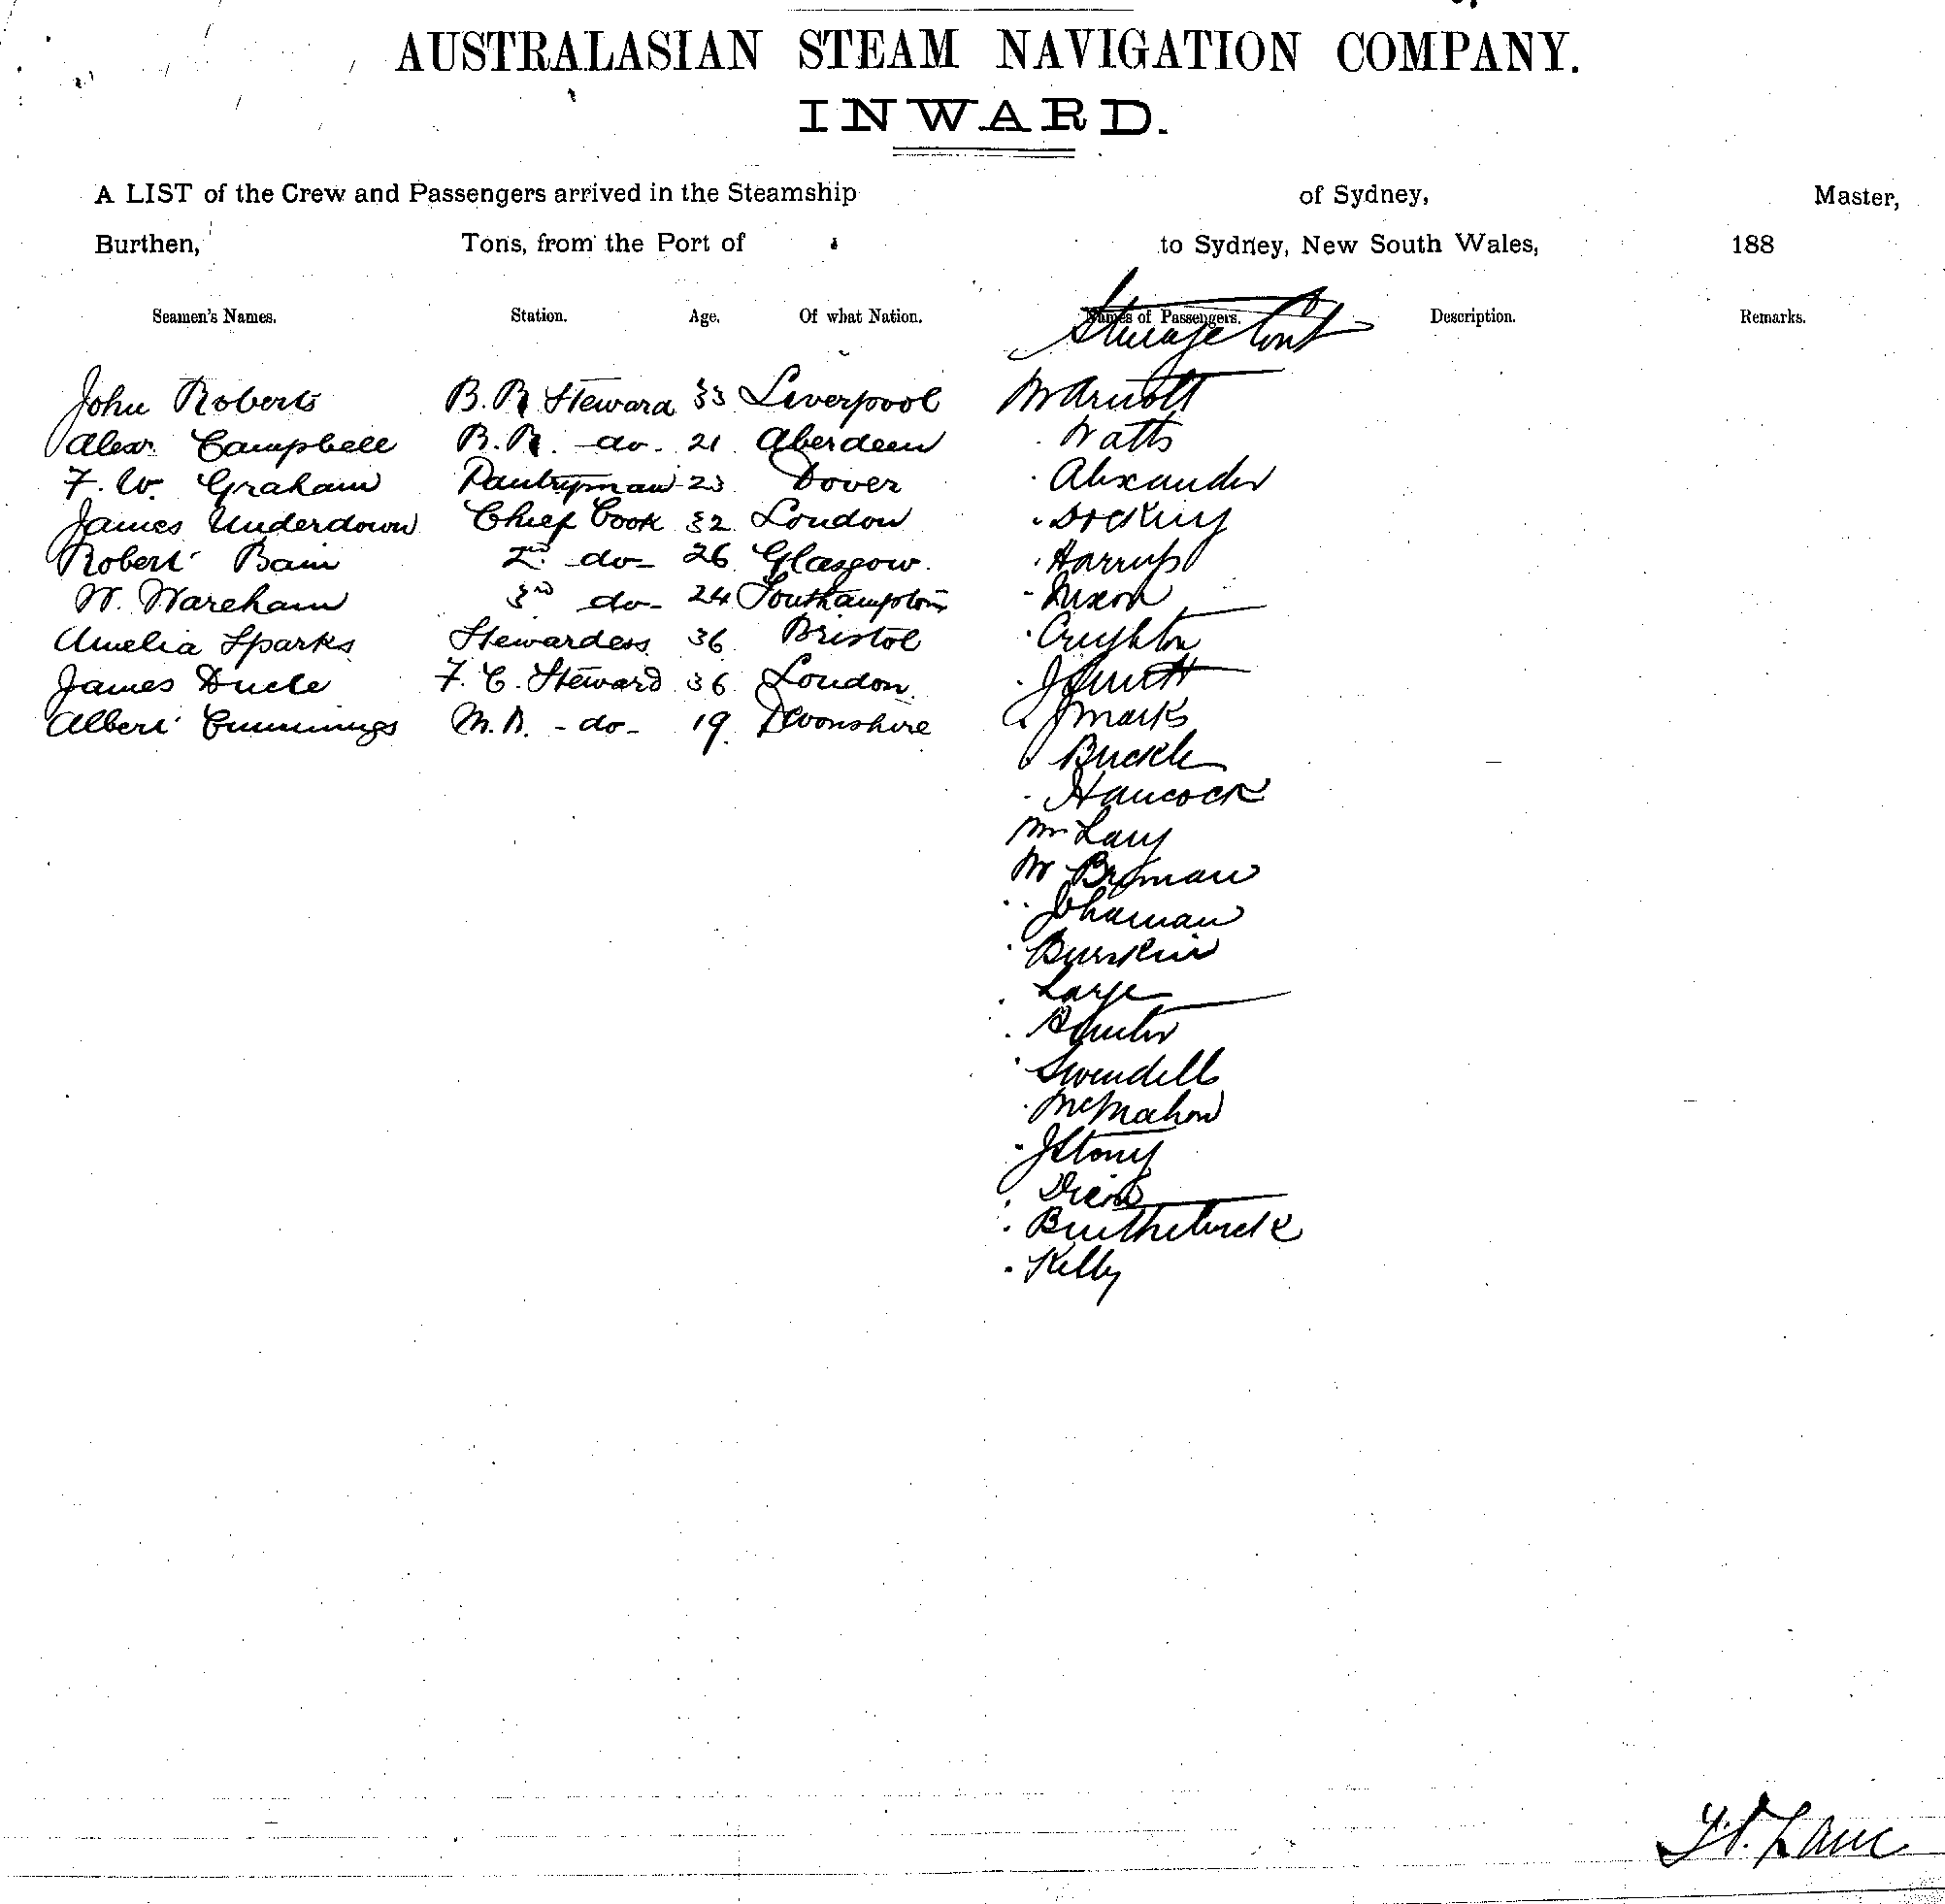 AUSTRALASIAN STEAM NAVIGATION COMPANY.
INWARD.
A LIST of the Crew and Passengers arrived in the Steamship of Sydney, Master,
Burthen, Tons, from the Port of to Sydney, New South Wales, 188
Seamen's Names. Station. Age. Of what Nation. Names of Passengers. Description. Remarks.
Steerage Cont
John Roberts B. R Steward 33 Liverpool Mr Arnott
Alexr Campbell B. R. do. 21 Aberdeen Watts
F. W. Graham Pantryman 23 Dover Alexander
James Underdown Chief Cook 32 London
Robert Bain 2nd do 26 Glasgow. Harrup
W. Wareham 3rd do 24 Southampton Nixon
Amelia Sparks Stewardess 36 Bristol Crighton
James Ducle F. C. Steward 36 London.
Albert Cummings M. R. - do - 19. Devonshire J Marks
Buckle
Hancock
Mr
Mr
Burskin
Large
Swendells
McMahon
J Stony
Kelly